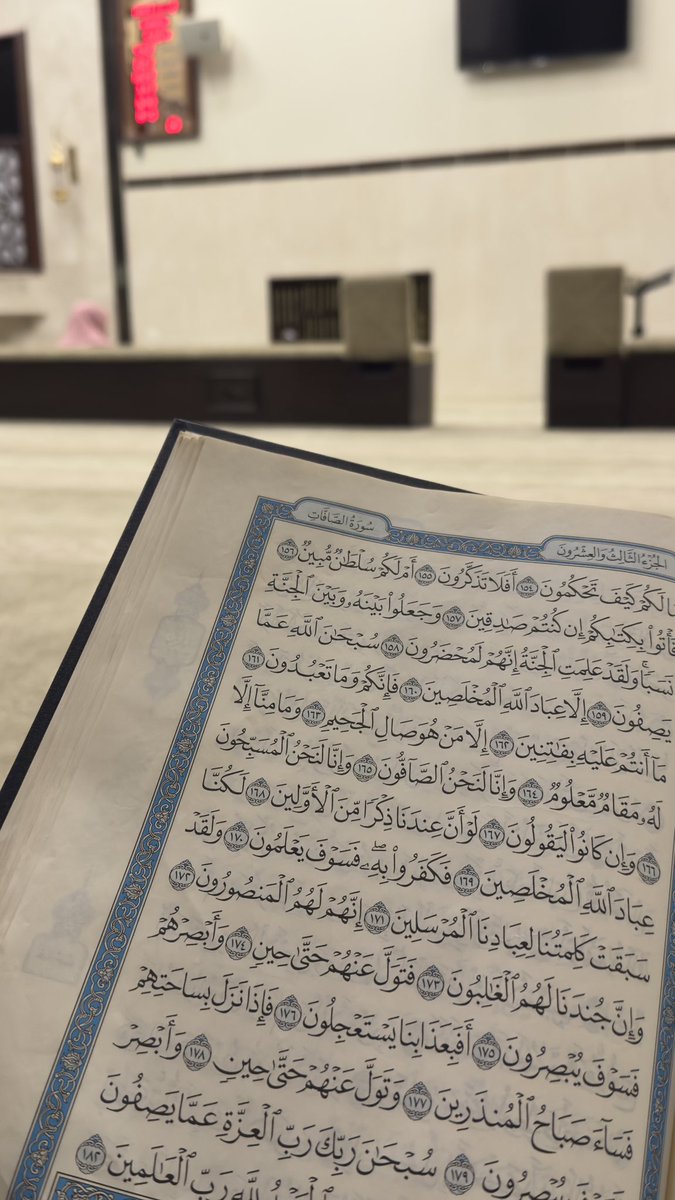 الجُزْءُ الثَّالِثُ وَالعِشْرُونَ سُورَةُ الصَّافَّاتِ
لَكُمْ كَيْفَ تَحْكُمُونَ ١٥٤ أَفَلَا تَذَكَّرُونَ ١٥٥ أَمْ لَكُمْ سُلْطَٰنٌ مُّبِينٌ ١٥٦
فَأْتُوا۟ بِكِتَٰبِكُمْ إِن كُنتُمْ صَٰدِقِينَ ١٥٧ وَجَعَلُوا۟ بَيْنَهُۥ وَبَيْنَ ٱلْجِنَّةِ
نَسَبًا ۚ وَلَقَدْ عَلِمَتِ ٱلْجِنَّةُ إِنَّهُمْ لَمُحْضَرُونَ ١٥٨ سُبْحَٰنَ ٱللَّهِ عَمَّا
يَصِفُونَ ١٥٩ إِلَّا عِبَادَ ٱللَّهِ ٱلْمُخْلَصِينَ ١٦٠ فَإِنَّكُمْ وَمَا تَعْبُدُونَ ١٦١
مَآ أَنتُمْ عَلَيْهِ بِفَٰتِنِينَ ١٦٢ إِلَّا مَنْ هُوَ صَالِ ٱلْجَحِيمِ ١٦٣ وَمَا مِنَّآ إِلَّا
لَهُۥ مَقَامٌ مَّعْلُومٌ ١٦٤ وَإِنَّا لَنَحْنُ ٱلصَّآفُّونَ ١٦٥ وَإِنَّا لَنَحْنُ ٱلْمُسَبِّحُونَ
١٦٦ وَإِن كَانُوا۟ لَيَقُولُونَ ١٦٧ لَوْ أَنَّ عِندَنَا ذِكْرًا مِّنَ ٱلْأَوَّلِينَ ١٦٨ لَكُنَّا
عِبَادَ ٱللَّهِ ٱلْمُخْلَصِينَ ١٦٩ فَكَفَرُوا۟ بِهِۦ ۖ فَسَوْفَ يَعْلَمُونَ ١٧٠ وَلَقَدْ
سَبَقَتْ كَلِمَتُنَا لِعِبَادِنَا ٱلْمُرْسَلِينَ ١٧١ إِنَّهُمْ لَهُمُ ٱلْمَنصُورُونَ ١٧٢
وَإِنَّ جُندَنَا لَهُمُ ٱلْغَٰلِبُونَ ١٧٣ فَتَوَلَّ عَنْهُمْ حَتَّىٰ حِينٍ ١٧٤ وَأَبْصِرْهُمْ
فَسَوْفَ يُبْصِرُونَ ١٧٥ أَفَبِعَذَابِنَا يَسْتَعْجِلُونَ ١٧٦ فَإِذَا نَزَلَ بِسَاحَتِهِمْ
فَسَآءَ صَبَاحُ ٱلْمُنذَرِينَ ١٧٧ وَتَوَلَّ عَنْهُمْ حَتَّىٰ حِينٍ ١٧٨ وَأَبْصِرْ
يُبْصِرُونَ ١٧٩ سُبْحَٰنَ رَبِّكَ رَبِّ ٱلْعِزَّةِ عَمَّا يَصِفُونَ
رَبِّ ٱلْعَٰلَمِينَ ١٨٢